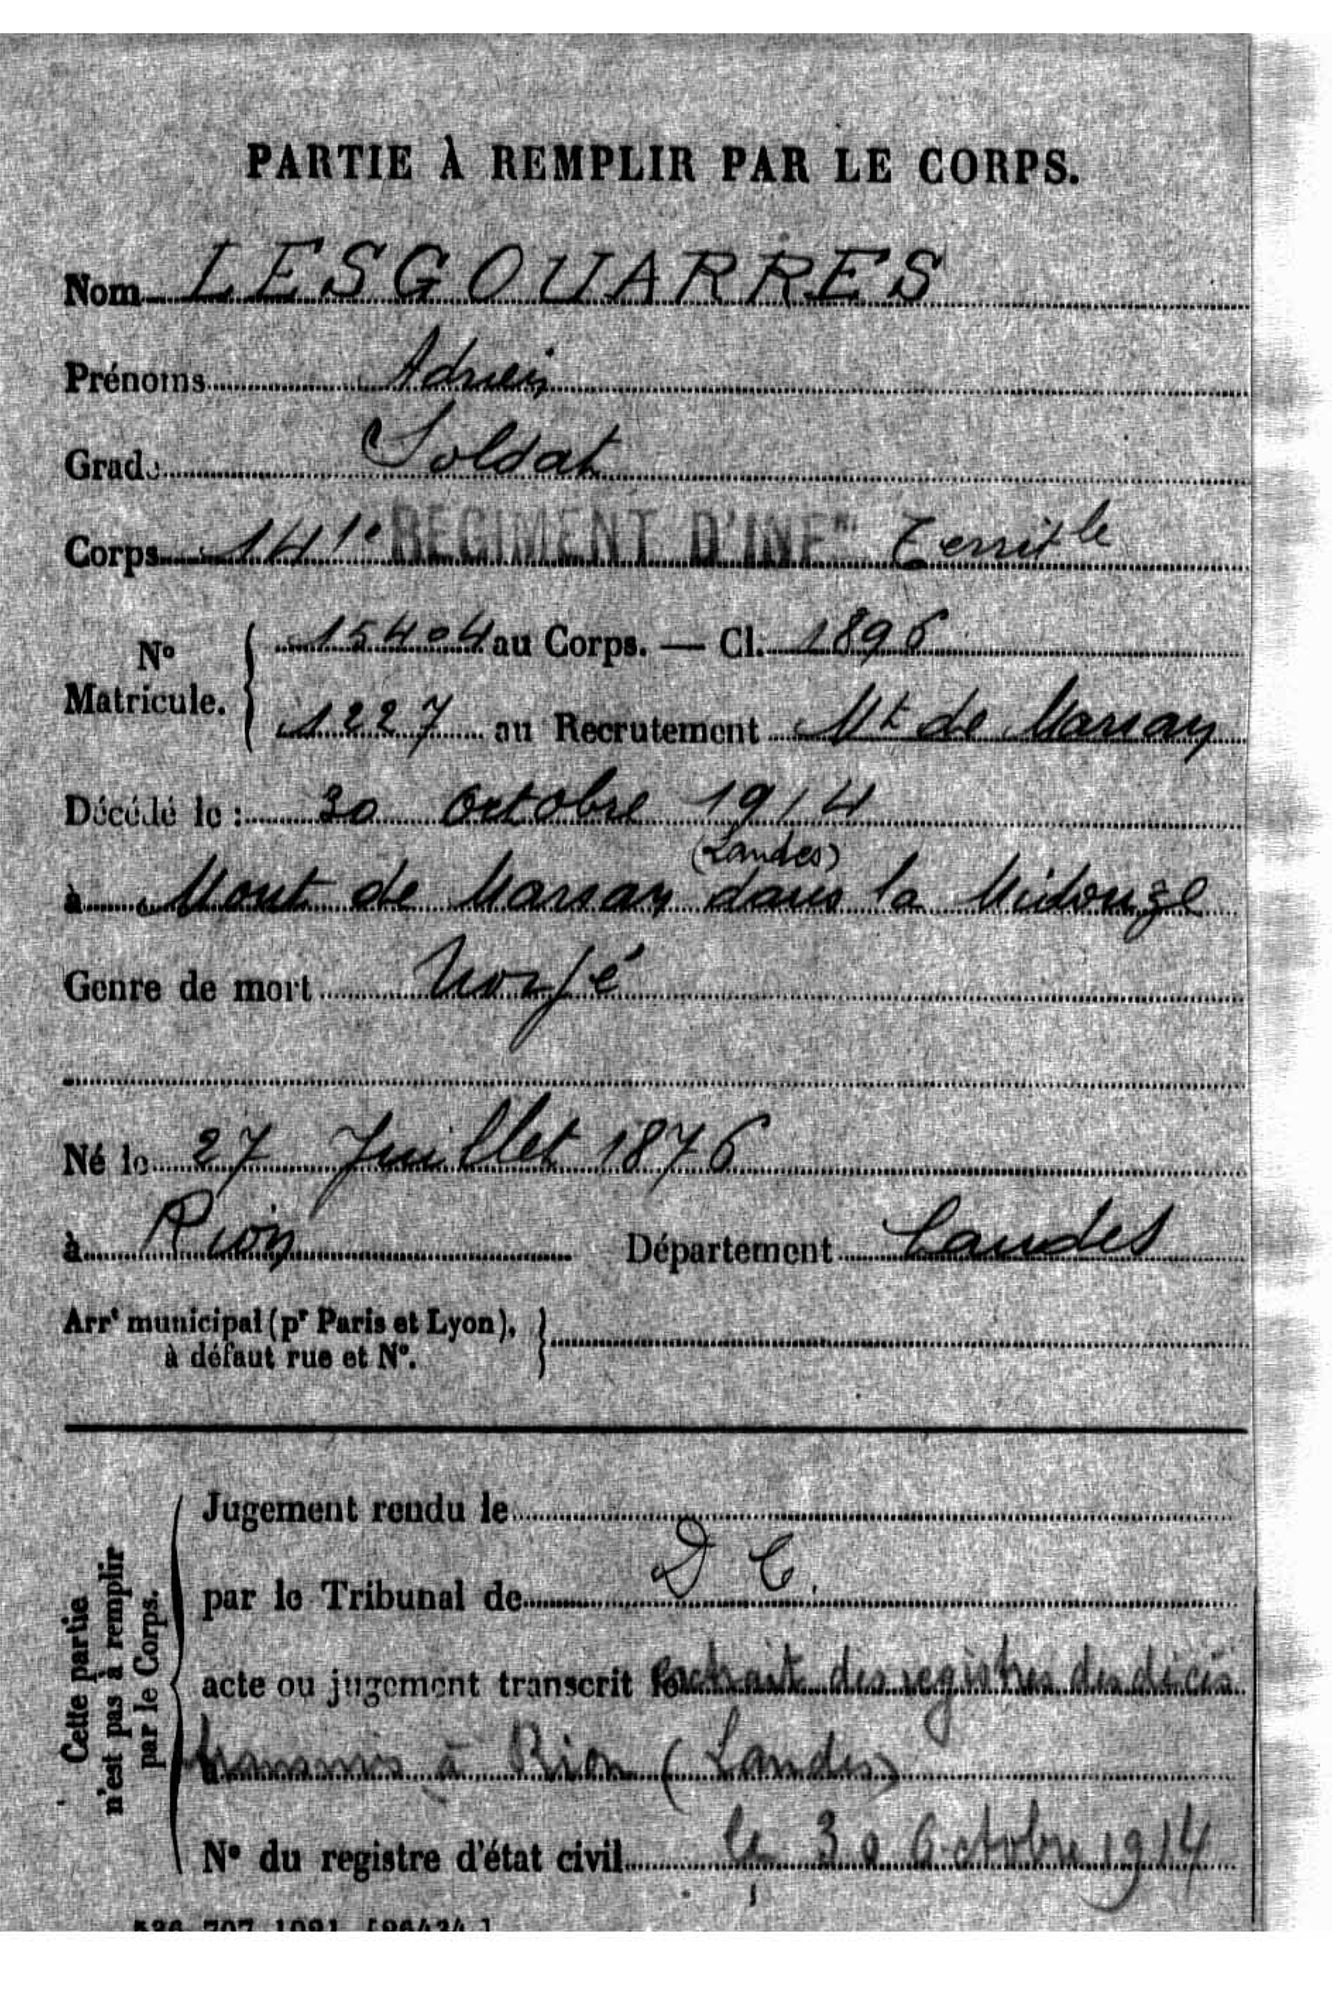 PARTIE À REMPLIR PAR LE CORPS.
Nom LESGOUARRES
Prénoms Adrien
Grade Soldat
Corps 141e REGIMENT D'INFie Territle
No Matricule. 15404 au Corps. — Cl. 1896
1227 au Recrutement Mt de Marsan
Décédé le : 30 Octobre 1914
(Landes)
à Mont de Marsan dans la Midouze
Genre de mort Noyé
Né le 27 Juillet 1876
à Rion Département Landes
Arrt municipal (pr Paris et Lyon),
à défaut rue et No.
Cette partie
n'est pas à remplir
par le Corps.
Jugement rendu le
par le Tribunal de D C.
acte ou jugement transcrit le extrait des registres des décès
transmis à Rion (Landes)
No du registre d'état civil le 30 Octobre 1914